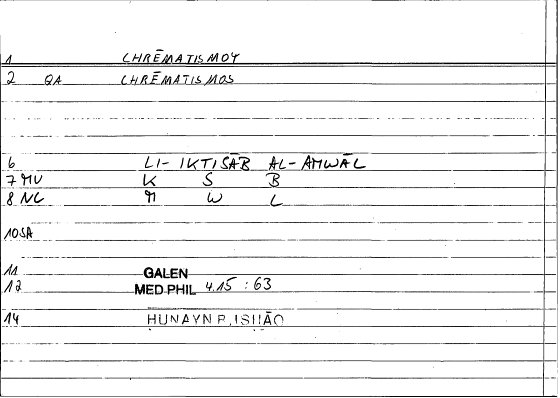 1 CHRĒMATISMOY
2 QA CHRĒMATISMOS
6 LI- IKTISĀB AL-AMWĀL
7 MV K S B
8 NC M W L
10 SA
11 GALEN
12 MED PHIL 4.15 : 63
14 ḤUNAYN B. ISḤĀQ